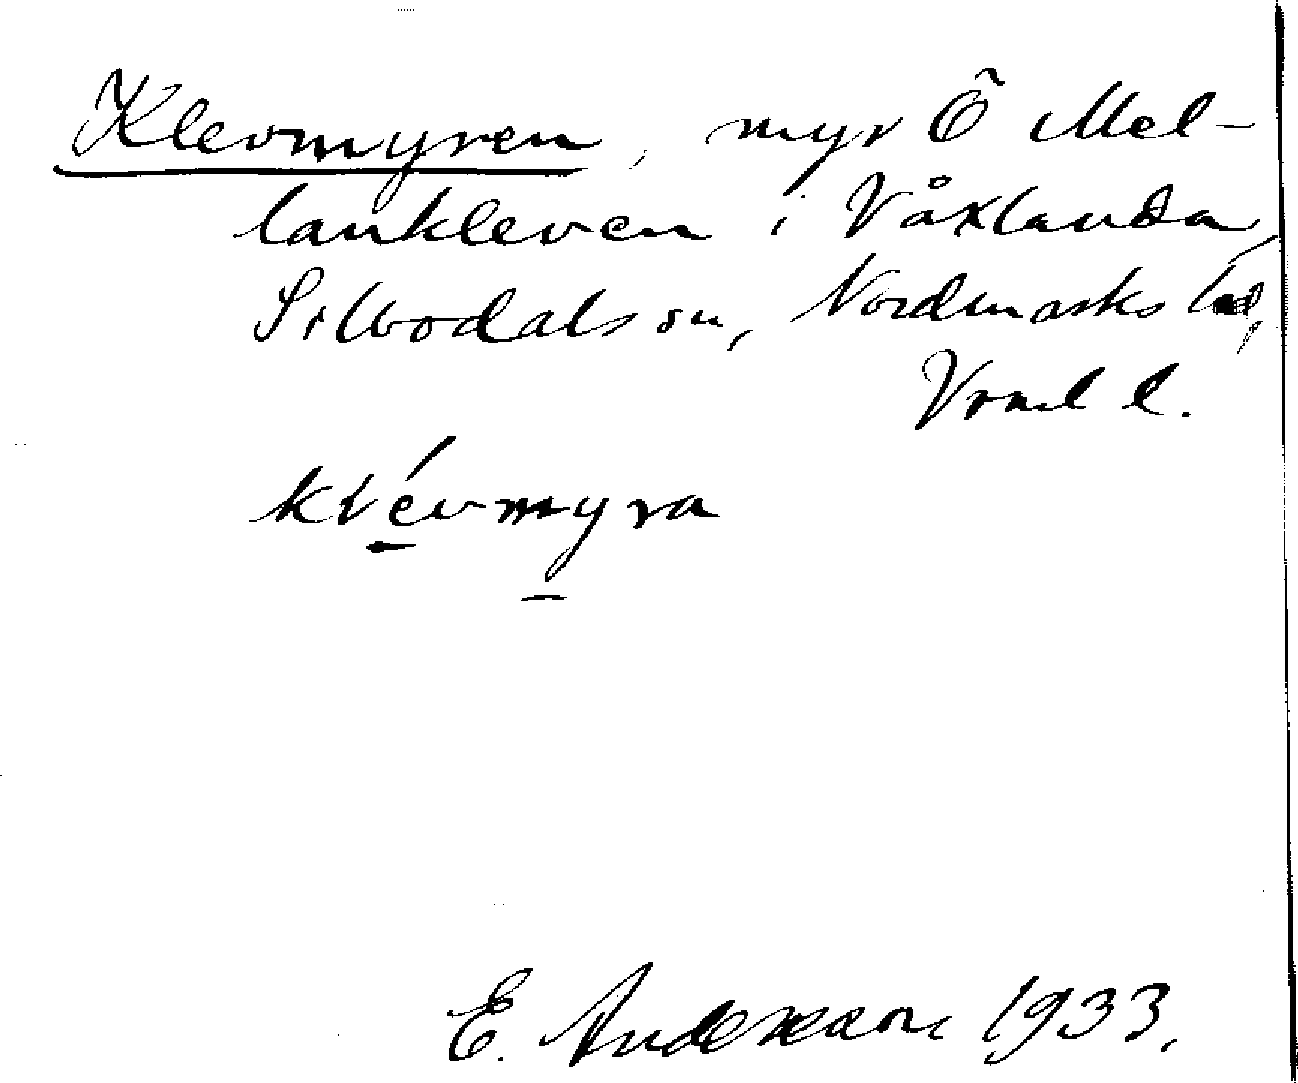 Klevmyren, myr Ö Mel-
lankleven i Våxlanda,
Silbodals sn, Nordmarks hd,
Vrml l.
klévmyra
E. Andersson 1933.